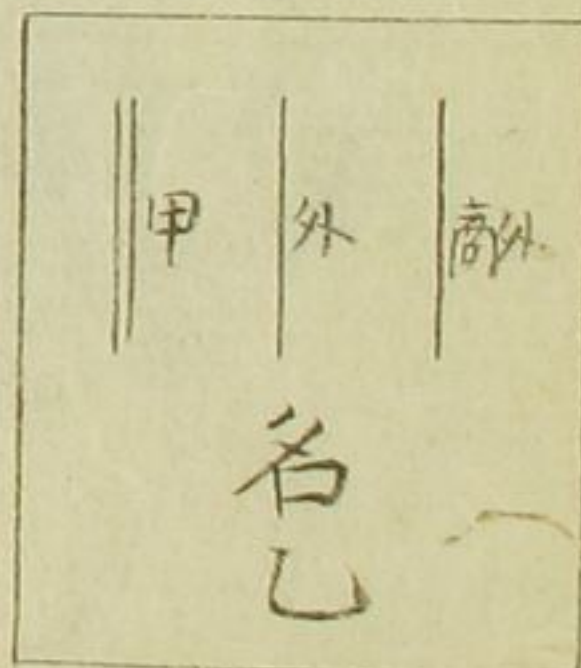 商外
外
甲
名乙